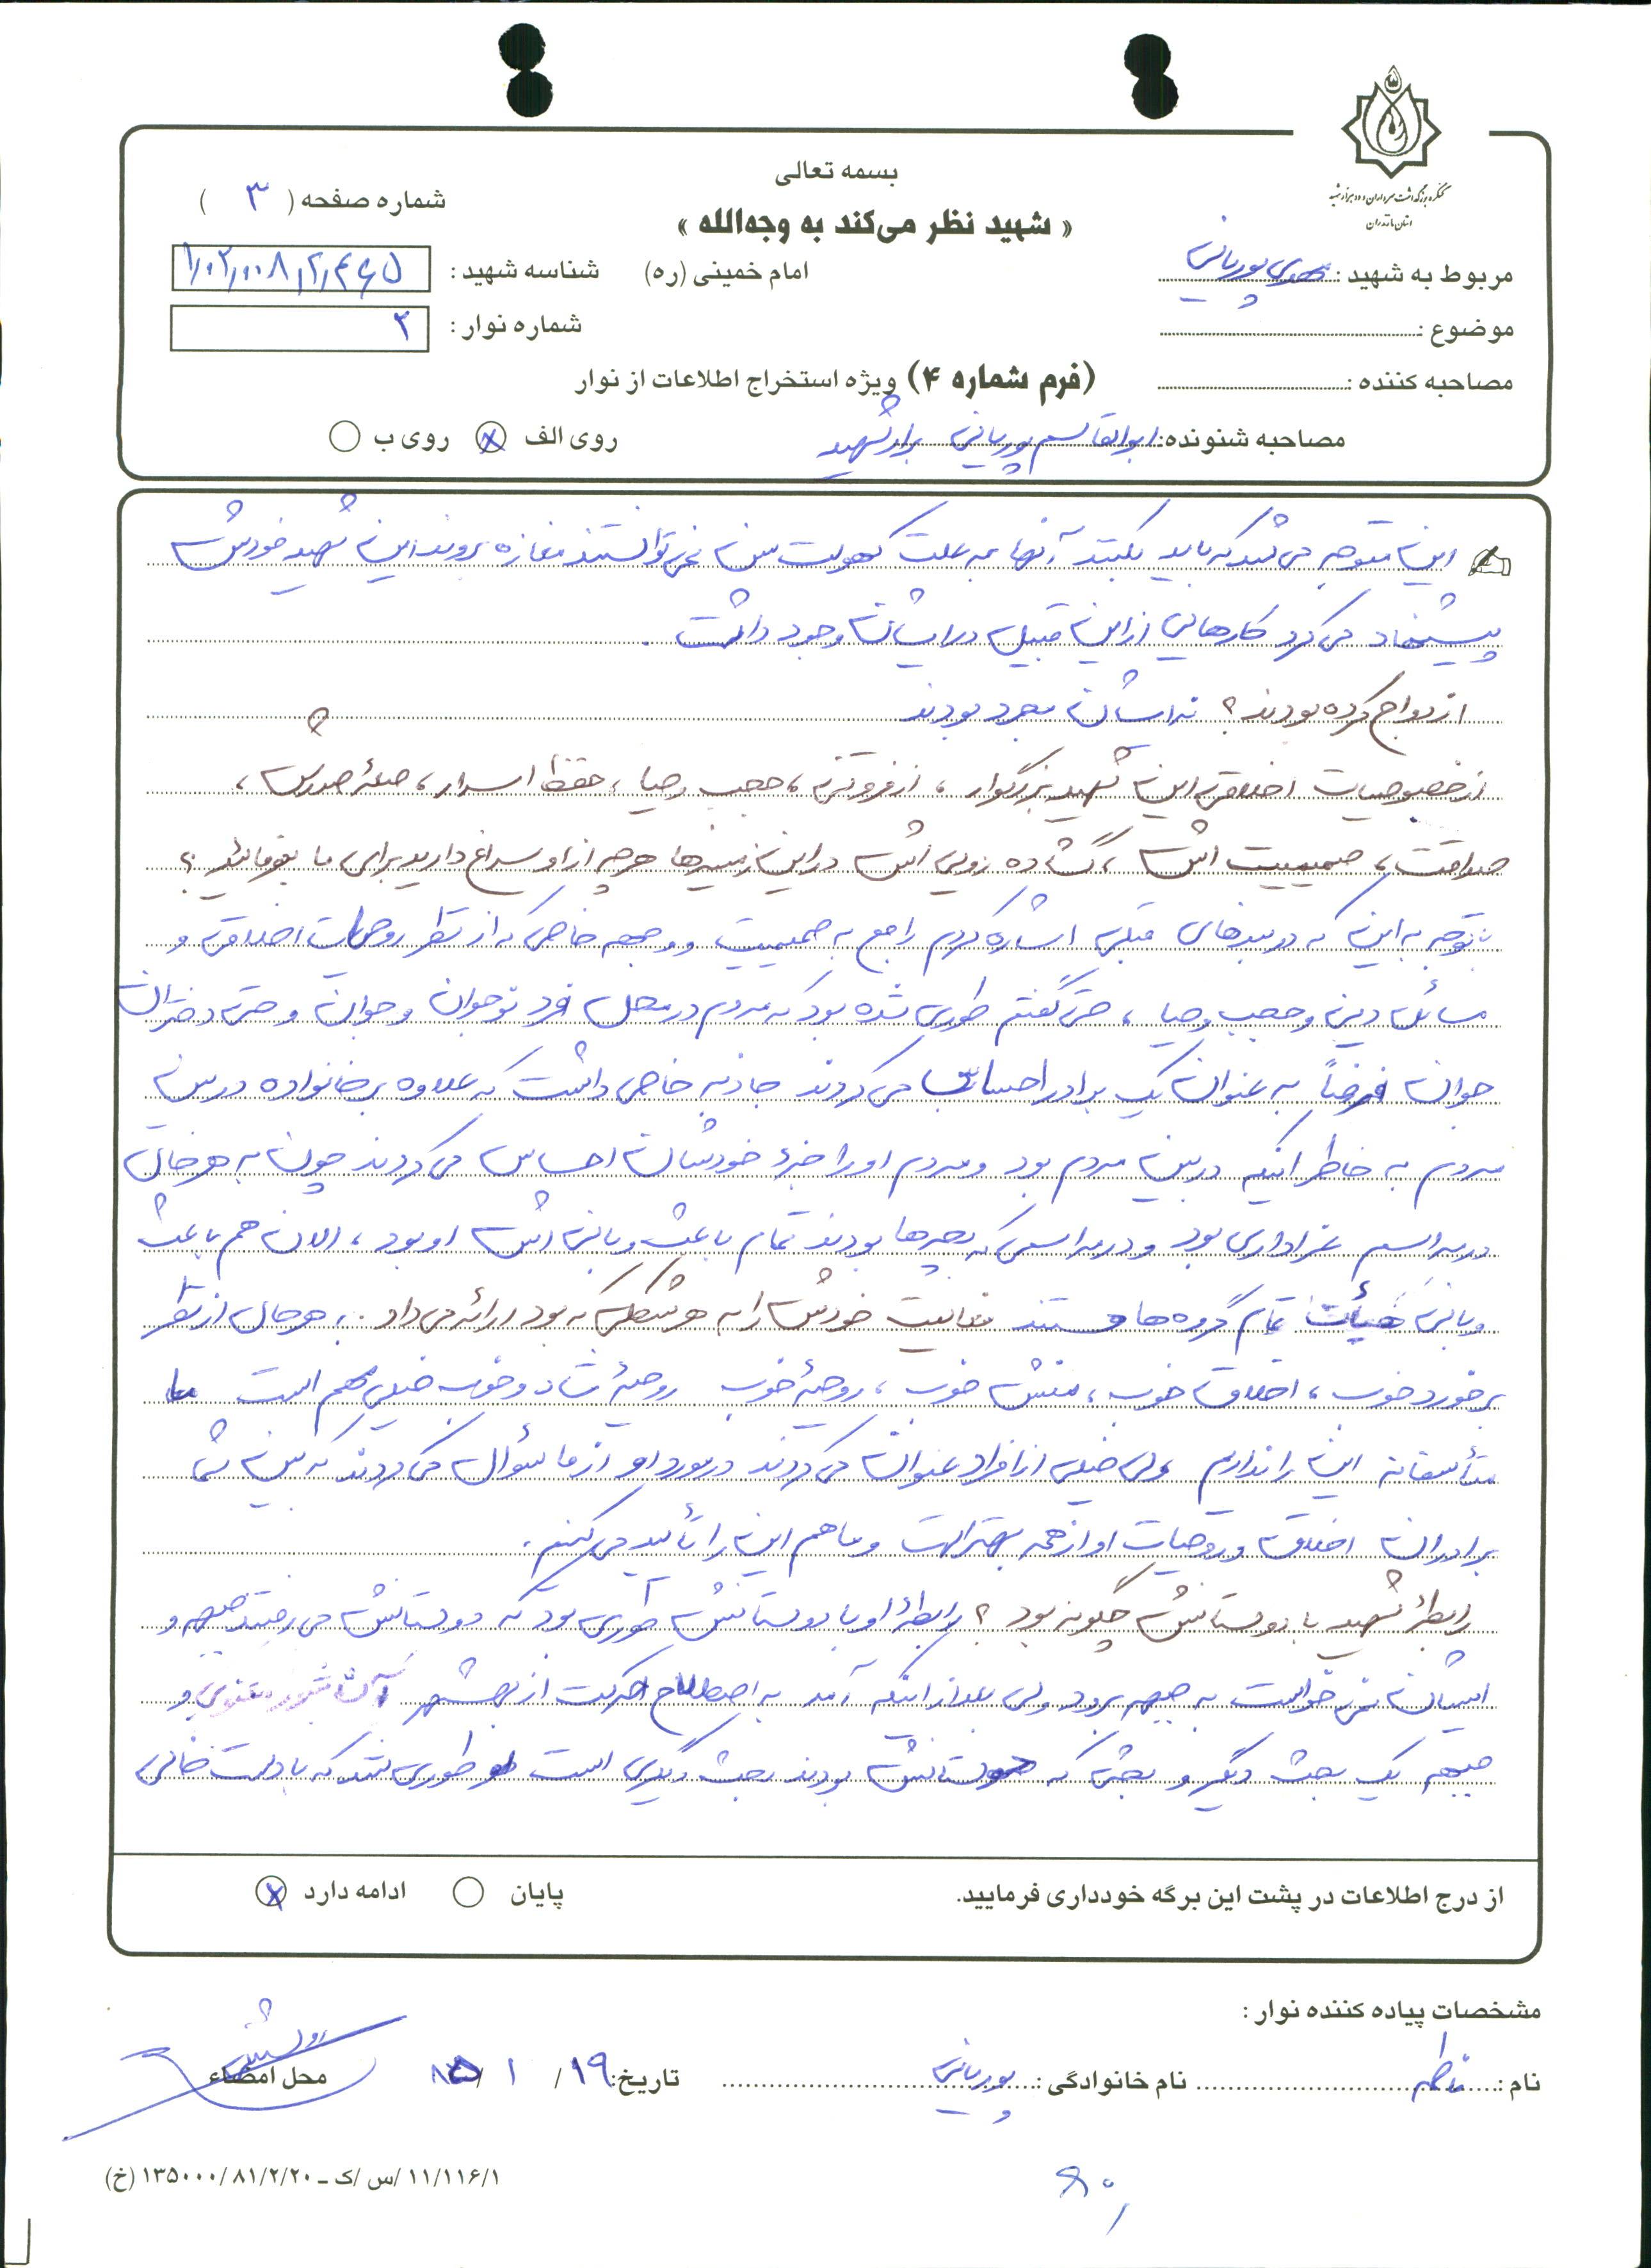 کنگره بزرگداشت سرداران و ده هزار شهید
استان مازندران
بسمه تعالی
شماره صفحه ( ۳ )
« شهید نظر می‌کند به وجه‌الله »
مربوط به شهید : مهدی پوربانی
امام خمینی (ره)
شناسه شهید :
موضوع :
شماره نوار : ۲
مصاحبه کننده :
(فرم شماره ۴) ویژه استخراج اطلاعات از نوار
مصاحبه شنونده : ابوالقاسم پوربانی برادر شهید
روی الف روی ب
این متوجه می شد که باید بکند آنها به علت کهولت سن نمی توانستند مغازه بروند این شهید خودش
پیشنهاد می کرد کارهایی از این قبیل در ایشان وجود داشت .
ازدواج کرده بودند ؟ نه ایشان مجرد بودند
از خصوصیات اخلاقی این شهید بزرگوار ، از فروتنی ، حجب و حیا ، حفظ اسرار ،
صداقت ، صمیمیت اش ، گشاده رویی اش در این زمینه ها هر چه از او سراغ دارید برای ما بفرمائید ؟
با توجه به این که در بندهای قبلی اشاره کردم راجع به صمیمیت و وجهه خاصی که از نظر روحیات اخلاقی و
مسائل دینی و حجب و حیا ، حتی گفتم طوری شده بود که مردم در محل فرد نوجوان و جوان و حتی دختران
جوان فرضاً به عنوان یک برادر احساس می کردند جاذبه خاصی داشت که علاوه بر خانواده در بین
مردم به خاطر اینکه در بین مردم بود و مردم او را جزء خودشان احساس می کردند چون به هر حال
در مراسم عزاداری بود و در مراسمی که بچه ها بودند تمام باعث و بانی اش او بود ، الان هم باعث
و بانی هیأت تمام گروه ها هستند فعالیت خودش را به هر شکلی که بود ارائه می داد . به هر حال از نظر
برخورد خوب ، اخلاق خوب ، منش خوب ، روحیۀ خوب روحیۀ شاد و خوب خیلی مهم است ما
متأسفانه این را نداریم ولی خیلی از افراد عنوان می کردند در مورد او از ما سئوال می کردند که بین شما
برادران اخلاق و روحیات او از همه بهتر است و ما هم این را تأیید می کنیم .
رابطۀ شهید با دوستانش چگونه بود ؟ رابطۀ او با دوستانش طوری بود که دوستانش می رفتند جبهه و
ایشان نمی خواست به جبهه برود ولی بعد از اینکه آمد به اصطلاح حرکت از بهشهر آن شور معنوی و
جبهه یک بحث دیگر و بحثی که دوستانش بودند بحث دیگری است و طوری شد که با دست خالی
از درج اطلاعات در پشت این برگه خودداری فرمایید.
پایان ادامه دارد
مشخصات پیاده کننده نوار :
نام : فاطمه نام خانوادگی : پوربانی تاریخ: ۱۹ / ۱ / ۸۵ محل امضاء
۱۱/۱۱۶/۱ /س /ک ـ ۸۱/۲/۲۰ /۱۳۵۰۰۰ (خ)